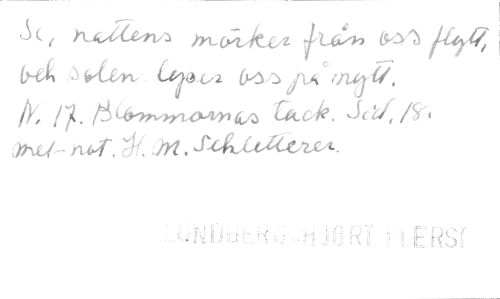 Se, nattens mörker från oss flytt,
och solen lyser oss på nytt.
N. 17. Blommornas tack. Sid. 18.
mel-not. H. M. Schletterer.
LUNDBERG-HJORT